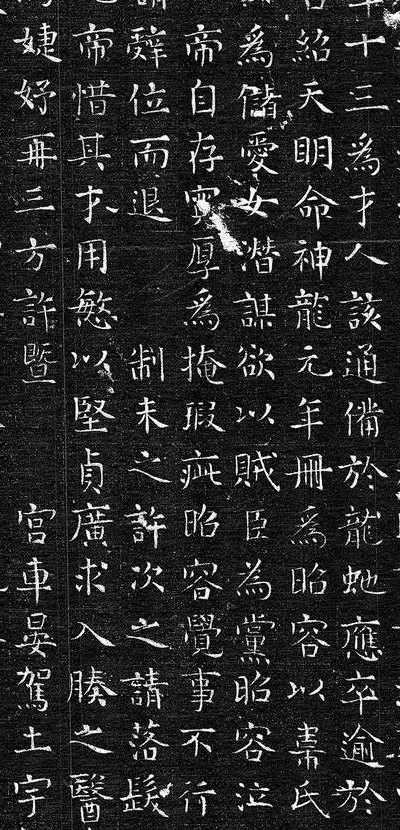 十三為才人該通備於龍虵應卒逾於
紹天眀命神龍元年冊為昭容以韋氏
為儲愛女潛謀欲以賊臣為黨昭容泣
帝自存寬厚為掩瑕疵昭容覺事不行
請辤位而退 制未之許次之請落髮
帝惜其才用慜以堅貞廣求入腠之醫
婕妤再三方許暨 宮車晏駕土宇